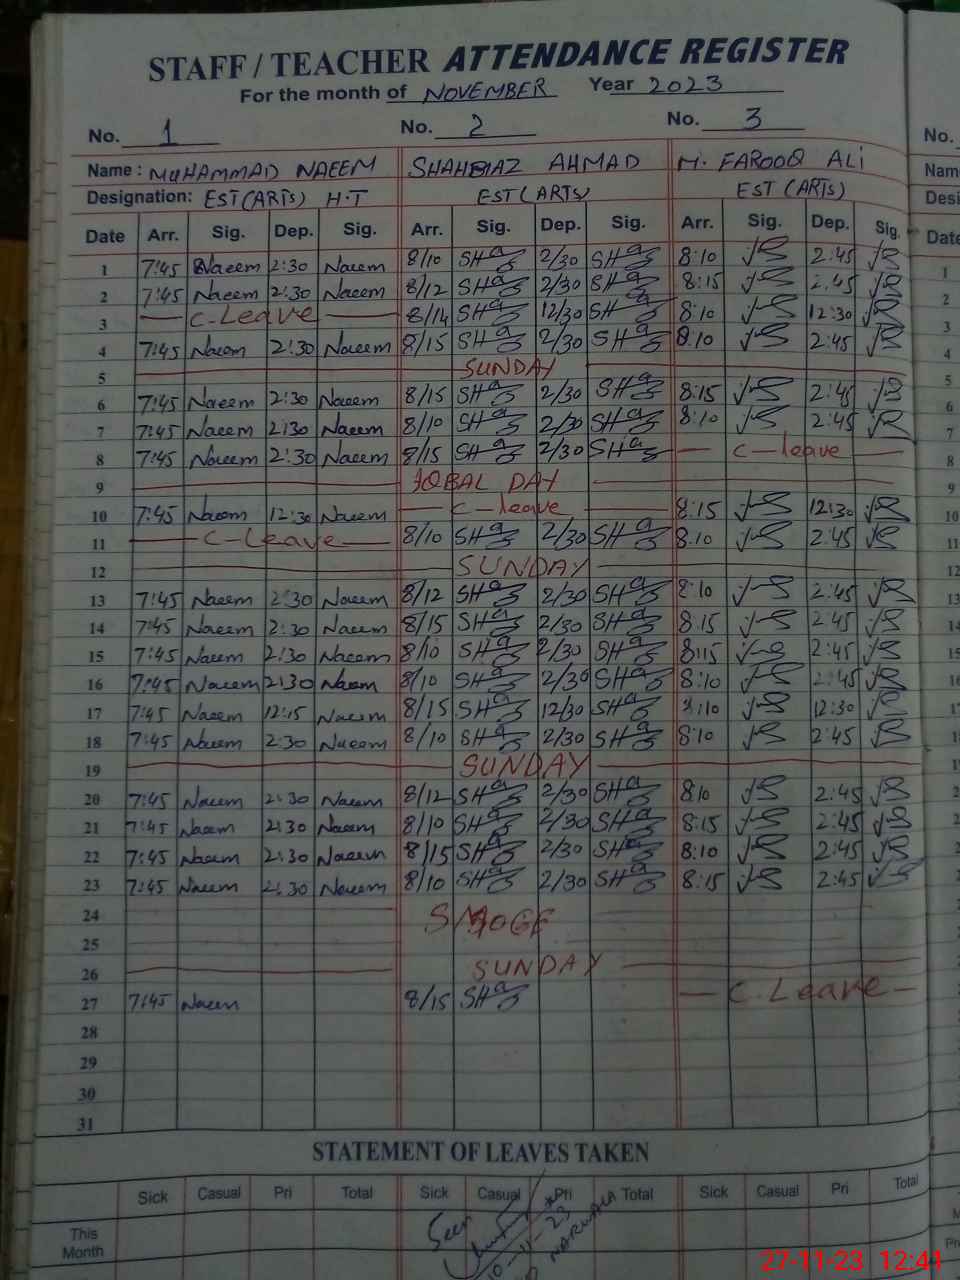 STAFF / TEACHER ATTENDANCE REGISTER
For the month of NOVEMBER Year 2023
No. 1 No. 2 No. 3 No.
Name : MUHAMMAD NAEEM SHAHBAZ AHMAD M. FAROOQ ALI Nam
Designation: EST (ARTS) H.T EST (ARTS) EST (ARTS) Desi
Date Arr. Sig. Dep. Sig. Arr. Sig. Dep. Sig. Arr. Sig. Dep. Sig. Date
1 7:45 Naeem 2:30 Naeem 8/10 SHaz 2/30 SHaz 8:10 2:45 1
2 7:45 Naeem 2:30 Naeem 8/12 SHaz 2/30 SHaz 8:15 2:45 2
3 C-Leave 8/14 SHaz 12/30 SHaz 8:10 12:30 3
4 7:45 Naeem 2:30 Naeem 8/15 SHaz 2/30 SHaz 8:10 2:45 4
5 SUNDAY 5
6 7:45 Naeem 2:30 Naeem 8/15 SHaz 2/30 SHaz 8:15 2:45 6
7 7:45 Naeem 2:30 Naeem 8/10 SHaz 2/30 SHaz 8:10 2:45 7
8 7:45 Naeem 2:30 Naeem 8/15 SHaz 2/30 SHaz C-leave 8
9 IQBAL DAY 9
10 7:45 Naeem 12:30 Naeem C-leave 8:15 12:30 10
11 C-Leave 8/10 SHaz 2/30 SHaz 8:10 2:45 11
12 SUNDAY 12
13 7:45 Naeem 2:30 Naeem 8/12 SHaz 2/30 SHaz 8:10 2:45 13
14 7:45 Naeem 2:30 Naeem 8/15 SHaz 2/30 SHaz 8:15 2:45 14
15 7:45 Naeem 2:30 Naeem 8/10 SHaz 2/30 SHaz 8:15 2:45 15
16 7:45 Naeem 2:30 Naeem 8/10 SHaz 2/30 SHaz 8:10 2:45 16
17 7:45 Naeem 12:15 Naeem 8/15 SHaz 12/30 SHaz 8:10 12:30 17
18 7:45 Naeem 2:30 Naeem 8/10 SHaz 2/30 SHaz 8:10 2:45
19 SUNDAY
20 7:45 Naeem 2:30 Naeem 8/12 SHaz 2/30 SHaz 8:10 2:45
21 7:45 Naeem 2:30 Naeem 8/10 SHaz 2/30 SHaz 8:15 2:45
22 7:45 Naeem 2:30 Naeem 8/15 SHaz 2/30 SHaz 8:10 2:45
23 7:45 Naeem 2:30 Naeem 8/10 SHaz 2/30 SHaz 8:15 2:45
24 SMOGE
25
26 SUNDAY
27 7:45 Naeem 8/15 SHaz C. Leave
28
29
30
31
STATEMENT OF LEAVES TAKEN
Sick Casual Pri Total Sick Casual Pri Total Sick Casual Pri Total
This Month
Seen
NARWALA
27-11-23 12:41